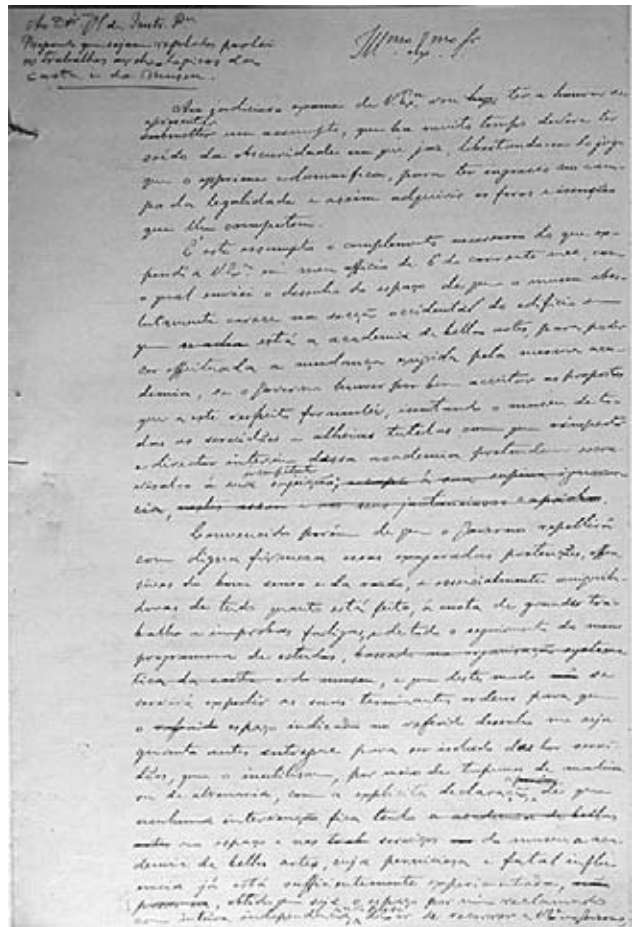 Ao Dor Dl de Instr. Pu
Proponho que sejam regulados por lei
os trabalhos archeologicos da
carta e do Museu.
Illmo Exmo Sr
Ao judicioso exame de V. Exa vou hoje ter a honra de
apresentar
submetter um assumpto, que ha muito tempo devêra ter
saido da obscuridade em que jaz, libertando-se do jugo
que o opprime e damnifica, para ter ingresso no cam-
po da legalidade e assim adquirir os foros e isenções
que lhe competem.
É este assumpto o complemento necessario do que ex-
pendi a V. Exa em meu officio de 6 do corrente mez, com
o qual enviei o desenho do espaço de que o museu abso-
lutamente carece na secção occidental do edificio em
que está a academia de bellas artes, para poder
ser effeituada a mudança exigida pela mesma aca-
demia, se o Governo houver por bem acceitar as propostas
que a este respeito formulei, isentando o museu de to-
das as servidões e alheias tutelas com que o inspector
e director interino dessa academia pretendem
á sua; e sempre á sua supina ignoran-
cia, e aos seus jactanciosos caprichos.
Convencido porém de que o Governo repellirá
com digna firmeza essas exageradas pretenções, offen-
sivas do bom senso e da razão, e essencialmente aniquila-
doras de tudo quanto está feito, á custa de grande tra-
balho e improbas fadigas, e de todo o seguimento do meu
programma de estudos, baseado na organisação systema-
tica da carta e do museu, e que deste modo se
servirá expedir as suas terminantes ordens para que
o referido espaço indicado no referido desenho me seja
quanto antes entregue para ser isolado das servi-
dões, que o inutilisam, por meio de tapumes de madeira
ou de alvenaria, com a explicita declaração de que
nenhuma intervenção fica tendo a academia de bellas
artes no espaço e nos serviços do museu a aca-
demia de bellas artes, cuja perniciosa e fatal influ-
encia já está sufficientemente experimentada,
obtido que seja o espaço por mim reclamado
com inteira independencia, de recorrer a V. Exa